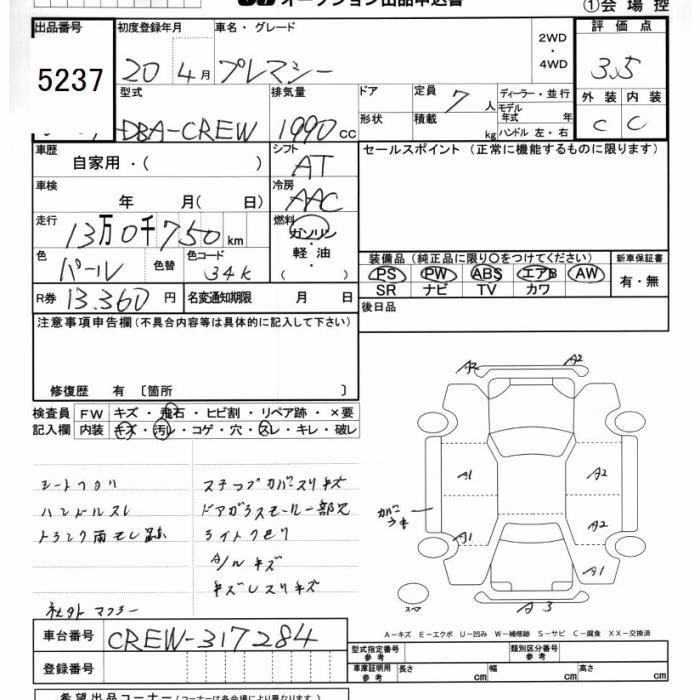 オークション出品申込書
① 会場控
出品番号 5237
初度登録年月 20 4月
車名・グレード プレマシー
2WD ・ 4WD
評価点 3.5
外装 C 内装 C
型式 DBA-CREW
排気量 1990 cc
ドア
形状
定員 7 人
積載 kg
ディーラー・並行
モデル年式 年
ハンドル 左・右
車歴 自家用・( )
シフト AT
セールスポイント (正常に機能するものに限ります)
車検 年 月( 日)
冷房 AAC
走行 13万0千750 km
燃料 ガソリン・軽油・( )
色 パール
色替
色コード 34K
装備品 (純正品に限り○をつけてください)
新車保証書
PS PW ABS エアB AW
SR ナビ TV カワ
有・無
R券 13.360 円
名変通知期限 月 日
後日品
注意事項申告欄 (不具合内容等は具体的に記入して下さい)
修復歴 有 〔箇所 〕
検査員記入欄
FW キズ・飛石・ヒビ割・リペア跡・×要
内装 キズ・汚レ・コゲ・穴・スレ・キレ・破レ
シートヘタリ
ハンドルスレ
トランク雨モレ跡
社外マフラー
ステップカバースリキズ
ドアガラスモール一部欠
ライトくもり
A/Wキズ
キズレスリキズ
A2 A2
A1 A2
カバーウキ
A2
A1
A1
スペア
A3
A-キズ E-エクボ U-凹み W-補修跡 S-サビ C-腐食 XX-交換済
車台番号 CREW-317284
登録番号
型式指定番号 参考
類別区分番号 参考
車庫証明用 参考 長さ cm 幅 cm 高さ cm
希望出品コーナー (コーナーは各会場により異なります。)